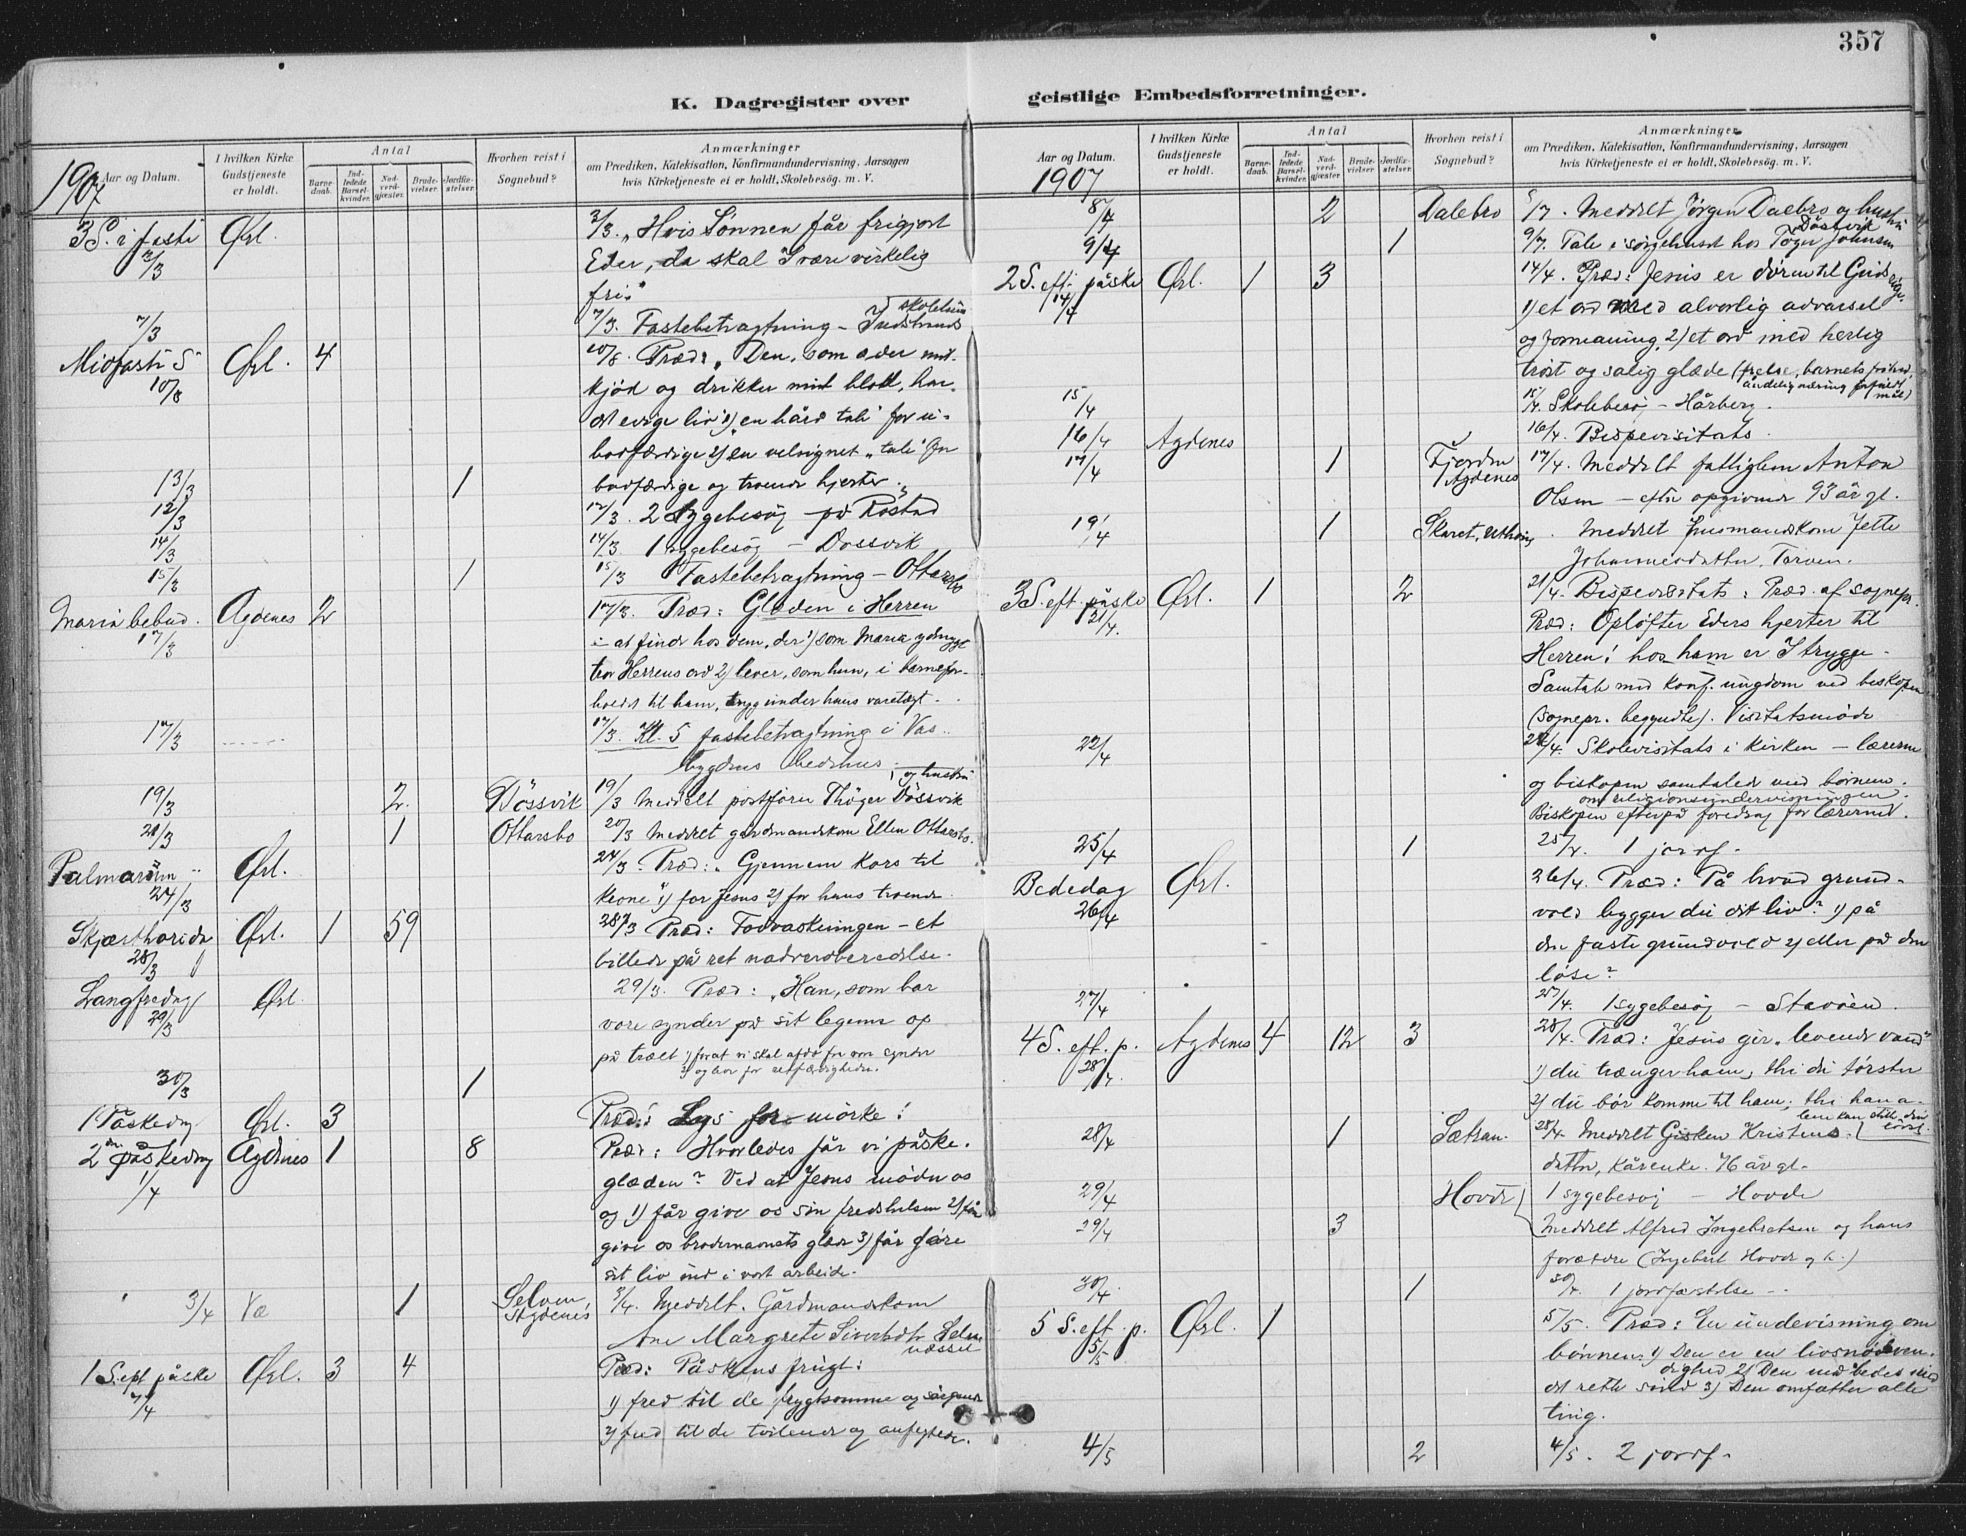 357
K. Dagregister over geistlige Embedsforretninger.
Aar og Datum.
1907
I hvilken Kirke Gudstjeneste er holdt.
Antal
Barnedaab.
Indledede Barselkvinder.
Nadverdgjæster.
Brudevielser.
Jordfæstelser.
Hvorhen reist i Sognebud?
Anmærkninger
om Prædiken, Katekisation, Konfirmandundervisning, Aarsagen
hvis Kirketjeneste ei er holdt, Skolebesøg. m. V.
3 S. i faste Ørl. 3/3. „Hvis Sønnen får frigjort
3/3 Eder, da skal I være virkelig
fri."
7/3 7/3. Fastebetragtning – Indstrands skolehus
Midfaste S Ørl. 4 10/3. Præd: „Den, som æder mit
10/3 kjød og drikker mit blod, har
det evige liv" 1) en hård tale for u-
bodfærdige 2) en velsignet „tale" for
13/3 1 bodfærdige og troende hjerter.
12/3 12/3. 2 sygebesøg på Røstad
14/3 14/3 1 sygebesøg – Døssvik
15/3 1 15/3 Fastebetragtning – Ottersbo
Mariæ bebud. Agdenes 2 17/3. Præd: Glæden i Herren
17/3 – at finde hos dem, der 1) som Maria ydmygt
tror Herrens ord 2) lever, som hun, i barnefor-
holdet til ham, trygg under hans varetægt.
17/3 17/3. Kl. 5 fastebetragtning i Vas-
bygdens bedehus
19/3 2 Døssvik 19/3 Meddelt postfører Thøger Døssvik og hustru
20/3 1 Ottarsbo 20/3 Meddelt gårdmandskone Ellen Ottarsbo.
Palmarum Ørl. 24/3. Præd: „Gjennem kors til
24/3 krone" 1) for Jesus 2) for hans troende
Skjærthorsda Ørl. 1 59 28/3 Præd: Fodvaskningen – et
28/3 billede på ret nadverberedelse.
Langfredag Ørl. 29/3. Præd: „Han, som bar
29/3 vore synder på sit legeme op
på træet" 1) forat vi skal afdø fra vore synder
2) og leve for retfærdigheden.
30/3 1
1 Påskedag Ørl. 3 Præd: Lys for mørke!
2 den påskedag Agdenes 1 8 Præd: Hvorledes får vi påske-
1/4 glæden? Ved at Jesus møder os
og 1) får give os sin fredshilsen 2) får
give os brodernavnets glæde 3) får føre
sit liv ind i vort arbeide.
3/4 Væ 1 Selven, Agdenes 3/4. Meddelt. Gårdmandskone
Ane Margrete Siversdtr Selvnæsset
1 S. eft påske Ørl. 3 4 Præd: Påskens frugt:
7/4 1) fred til de frygtsomme og sørgende
2) fred til de tvilende og anfegtede.
Aar og Datum.
1907
I hvilken Kirke Gudstjeneste er holdt.
Antal
Barnedaab.
Indledede Barselkvinder.
Nadverdgjæster.
Brudevielser.
Jordfæstelser.
Hvorhen reist i Sognebud?
Anmærkninger
om Prædiken, Katekisation, Konfirmandundervisning, Aarsagen
hvis Kirketjeneste ei er holdt, Skolebesøg. m. V.
8/4 2 Dalebro Meddelt Jørgen Daebro og hustru
9/4 1 Tale i sørgehuset hos Tøger Johnsen Døsvik
2 S. eft. påske Ørl. 1 3 14/4. Præd: Jesus er døren til Guds rige.
14/4 1) et ord med alvorlig advarsel
og formaning, 2) et ord med herlig
trøst og salig glæde (frelse, barnets frihed,
åndelig næring
15/4 15/4. Skolebesøg – Hårberg.
16/4 Agdenes 16/4. Bispevisitats.
17/4 1 Fjorden Agdenes 17/4. Meddelt fattiglem Anton
Olsen – efter opgivende 93 år gl.
19/4 1 Skaret, Uthaug. Meddelt husmandskone Jette
Johannesdatter, Tarven.
3 S. eft påske Ørl. 1 2 21/4. Bispevisitats: Præd. af sognepr.
21/4. Præd: Opløfter Eders hjerter til
Herren! hos ham er I trygge.
Samtale med konf. ungdom ved biskopen
(sognepr. begyndte). Visitatsmøde
22/4 22/4. Skolevisitats i kirken – lærerne
og biskopen samtalede med børnene.
om religionsundervisningen.
Biskopen efterpå foredrag for lærerne.
25/4 1 25/4. 1 jordf.
Bededag Ørl. 26/4. Præd: På hvad grund-
26/4 vold bygger du dit liv? 1) på
den faste grundvold 2) eller på den
løse?
27/4 27/4. 1 sygebesøg – Stavøen.
4 S. eft. p. Agdenes 4 12 3 28/4. Præd: Jesus gir „levende vand"
28/4. 1) du trænger ham, thi du tørster
2) du bør komme til ham; thi han a-
lene kan stille din tørst.
28/4 1 Sætran. 28/4. Meddelt Gisken Kristens-
datter, kårenke. 76 år gl.
29/4 Hovde 1 sygebesøg – Hovde
29/4 3 Meddelt Alfred Ingebretsen og hans
forældre (Ingebrt Hovde og h.)
30/4 1 30/4. 1 jordfæstelse –
5 S. eft. p. Ørl. 1 5/5. Præd: En undervisning om
5/5 bønnen: 1) Den er en livsnødven-
dighed 2) Den må bedes med
det rette sind 3) Den omfatter alle
ting.
4/5 2 4/5. 2 jordf.